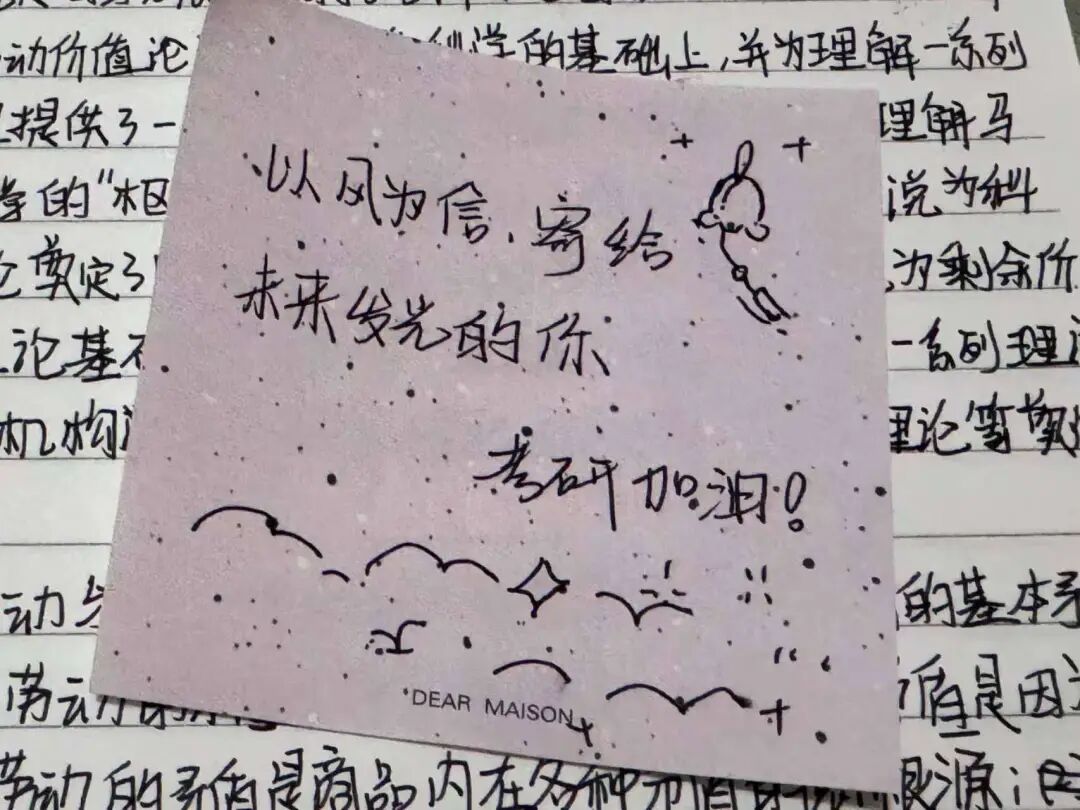 动价值论 学的基础上,并为理解一系列
提供了一 理解马
学的“枢 说为科
奠定了 为剩余价
论基 一系列理
机构 理论等奠
以风为信,寄给
未来发光的你
考研加油!
DEAR MAISON
动 的基本
劳动 值是因
劳动的 值是商品内在各种 价值 根源;